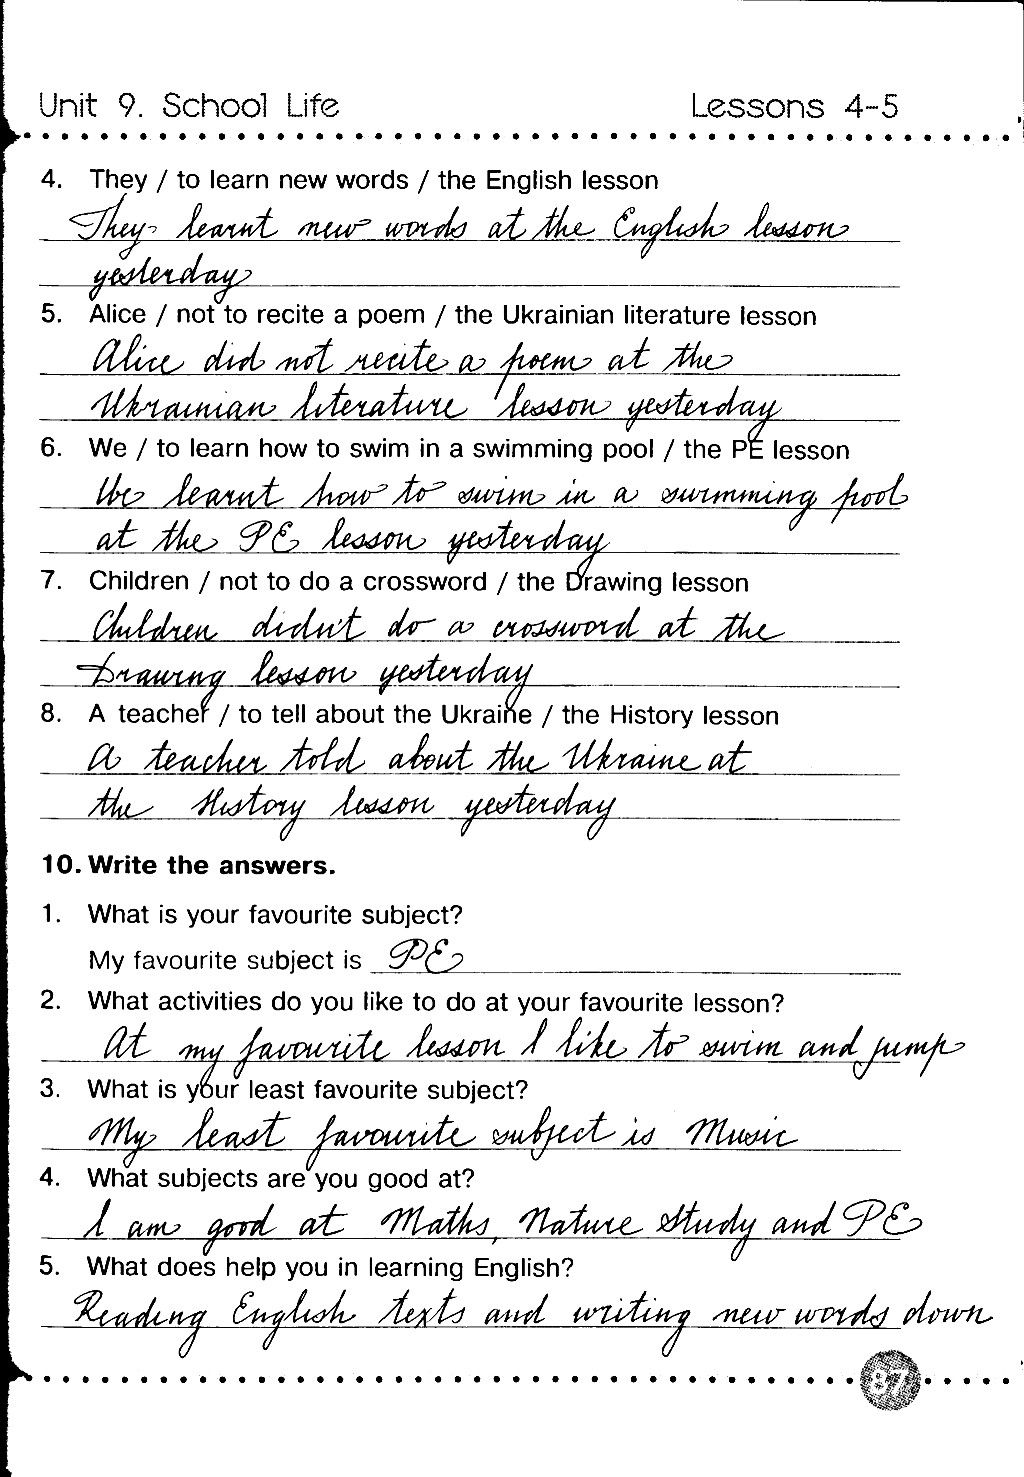 Unit 9. School Life Lessons 4-5
4. They / to learn new words / the English lesson
They learnt new words at the English lesson
yesterday
5. Alice / not to recite a poem / the Ukrainian literature lesson
Alice did not recite a poem at the
Ukrainian literature lesson yesterday
6. We / to learn how to swim in a swimming pool / the PE lesson
We learnt how to swim in a swimming pool
at the PE lesson yesterday
7. Children / not to do a crossword / the Drawing lesson
Children didn't do a crossword at the
Drawing lesson yesterday
8. A teacher / to tell about the Ukraine / the History lesson
A teacher told about the Ukraine at
the History lesson yesterday
10. Write the answers.
1. What is your favourite subject?
My favourite subject is PE
2. What activities do you like to do at your favourite lesson?
At my favourite lesson I like to swim and jump
3. What is your least favourite subject?
My least favourite subject is Music
4. What subjects are you good at?
I am good at Maths, Nature Study and PE
5. What does help you in learning English?
Reading English texts and writing new words down
87